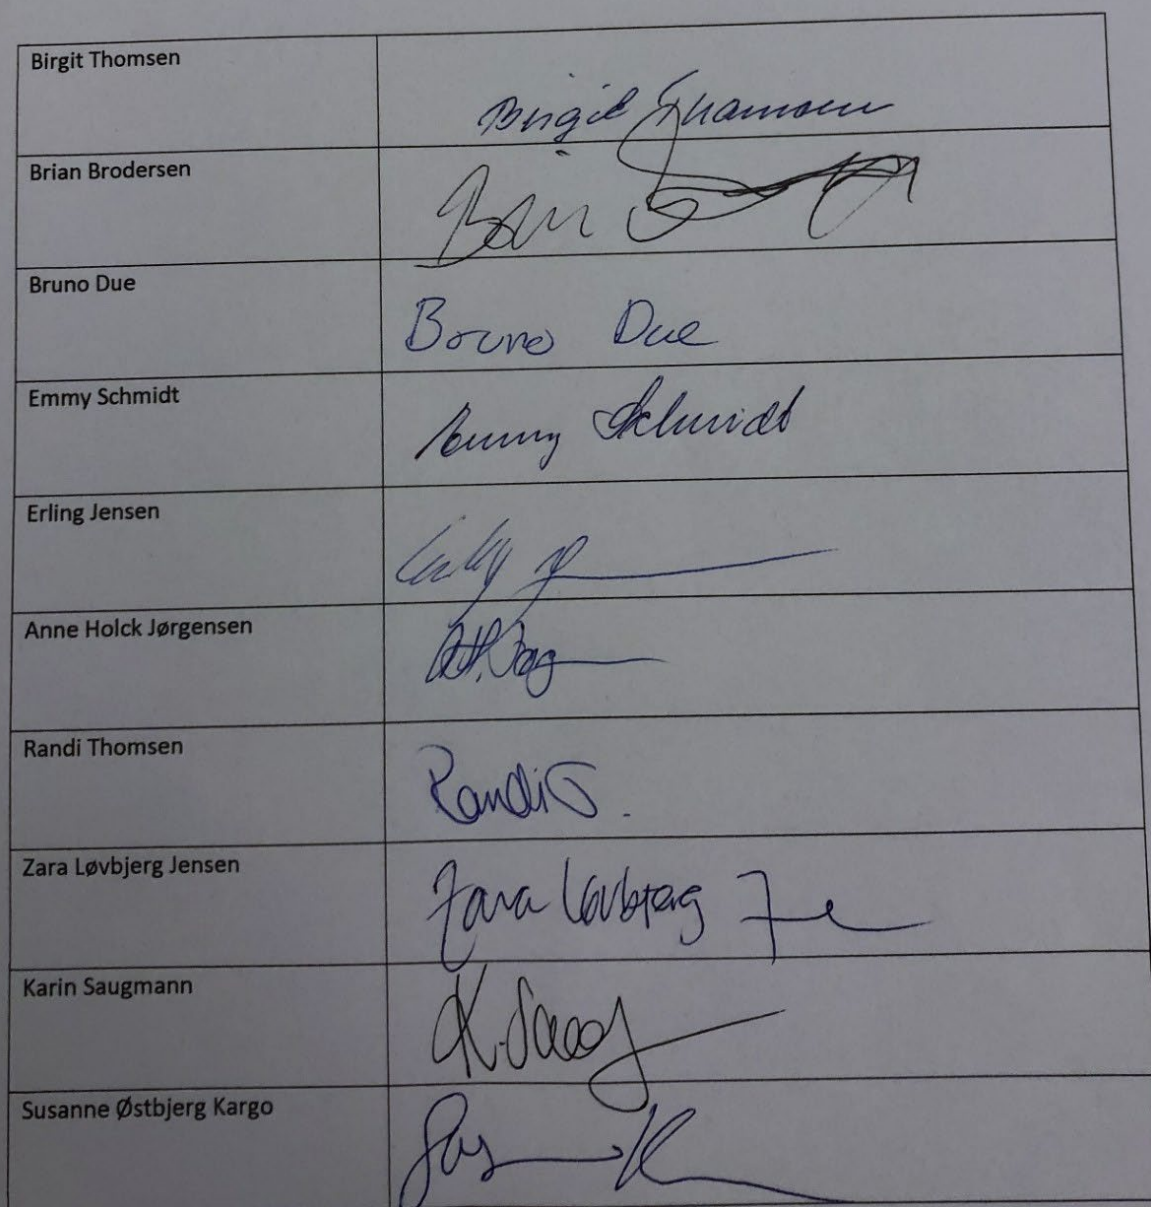 Birgit Thomsen Birgit Thomsen
Brian Brodersen
Bruno Due Bruno Due
Emmy Schmidt Emmy Schmidt
Erling Jensen
Anne Holck Jørgensen
Randi Thomsen Randi T.
Zara Løvbjerg Jensen Zara Løvbjerg
Karin Saugmann K. Saug
Susanne Østbjerg Kargo